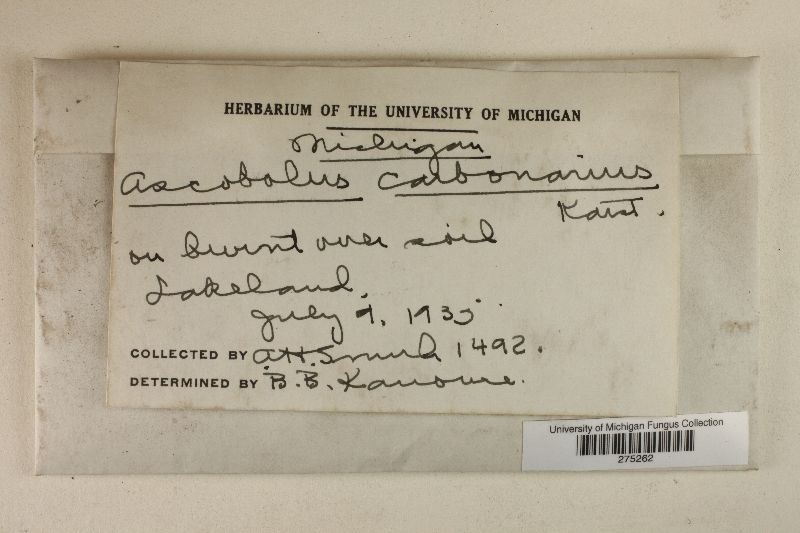 HERBARIUM OF THE UNIVERSITY OF MICHIGAN
Michigan
Ascobolus carbonarius
Karst.
on burnt over soil
Lakeland,
July 9, 1935
COLLECTED BY A.H. Smith 1492.
DETERMINED BY B.B. Kanouse.
University of Michigan Fungus Collection
275262